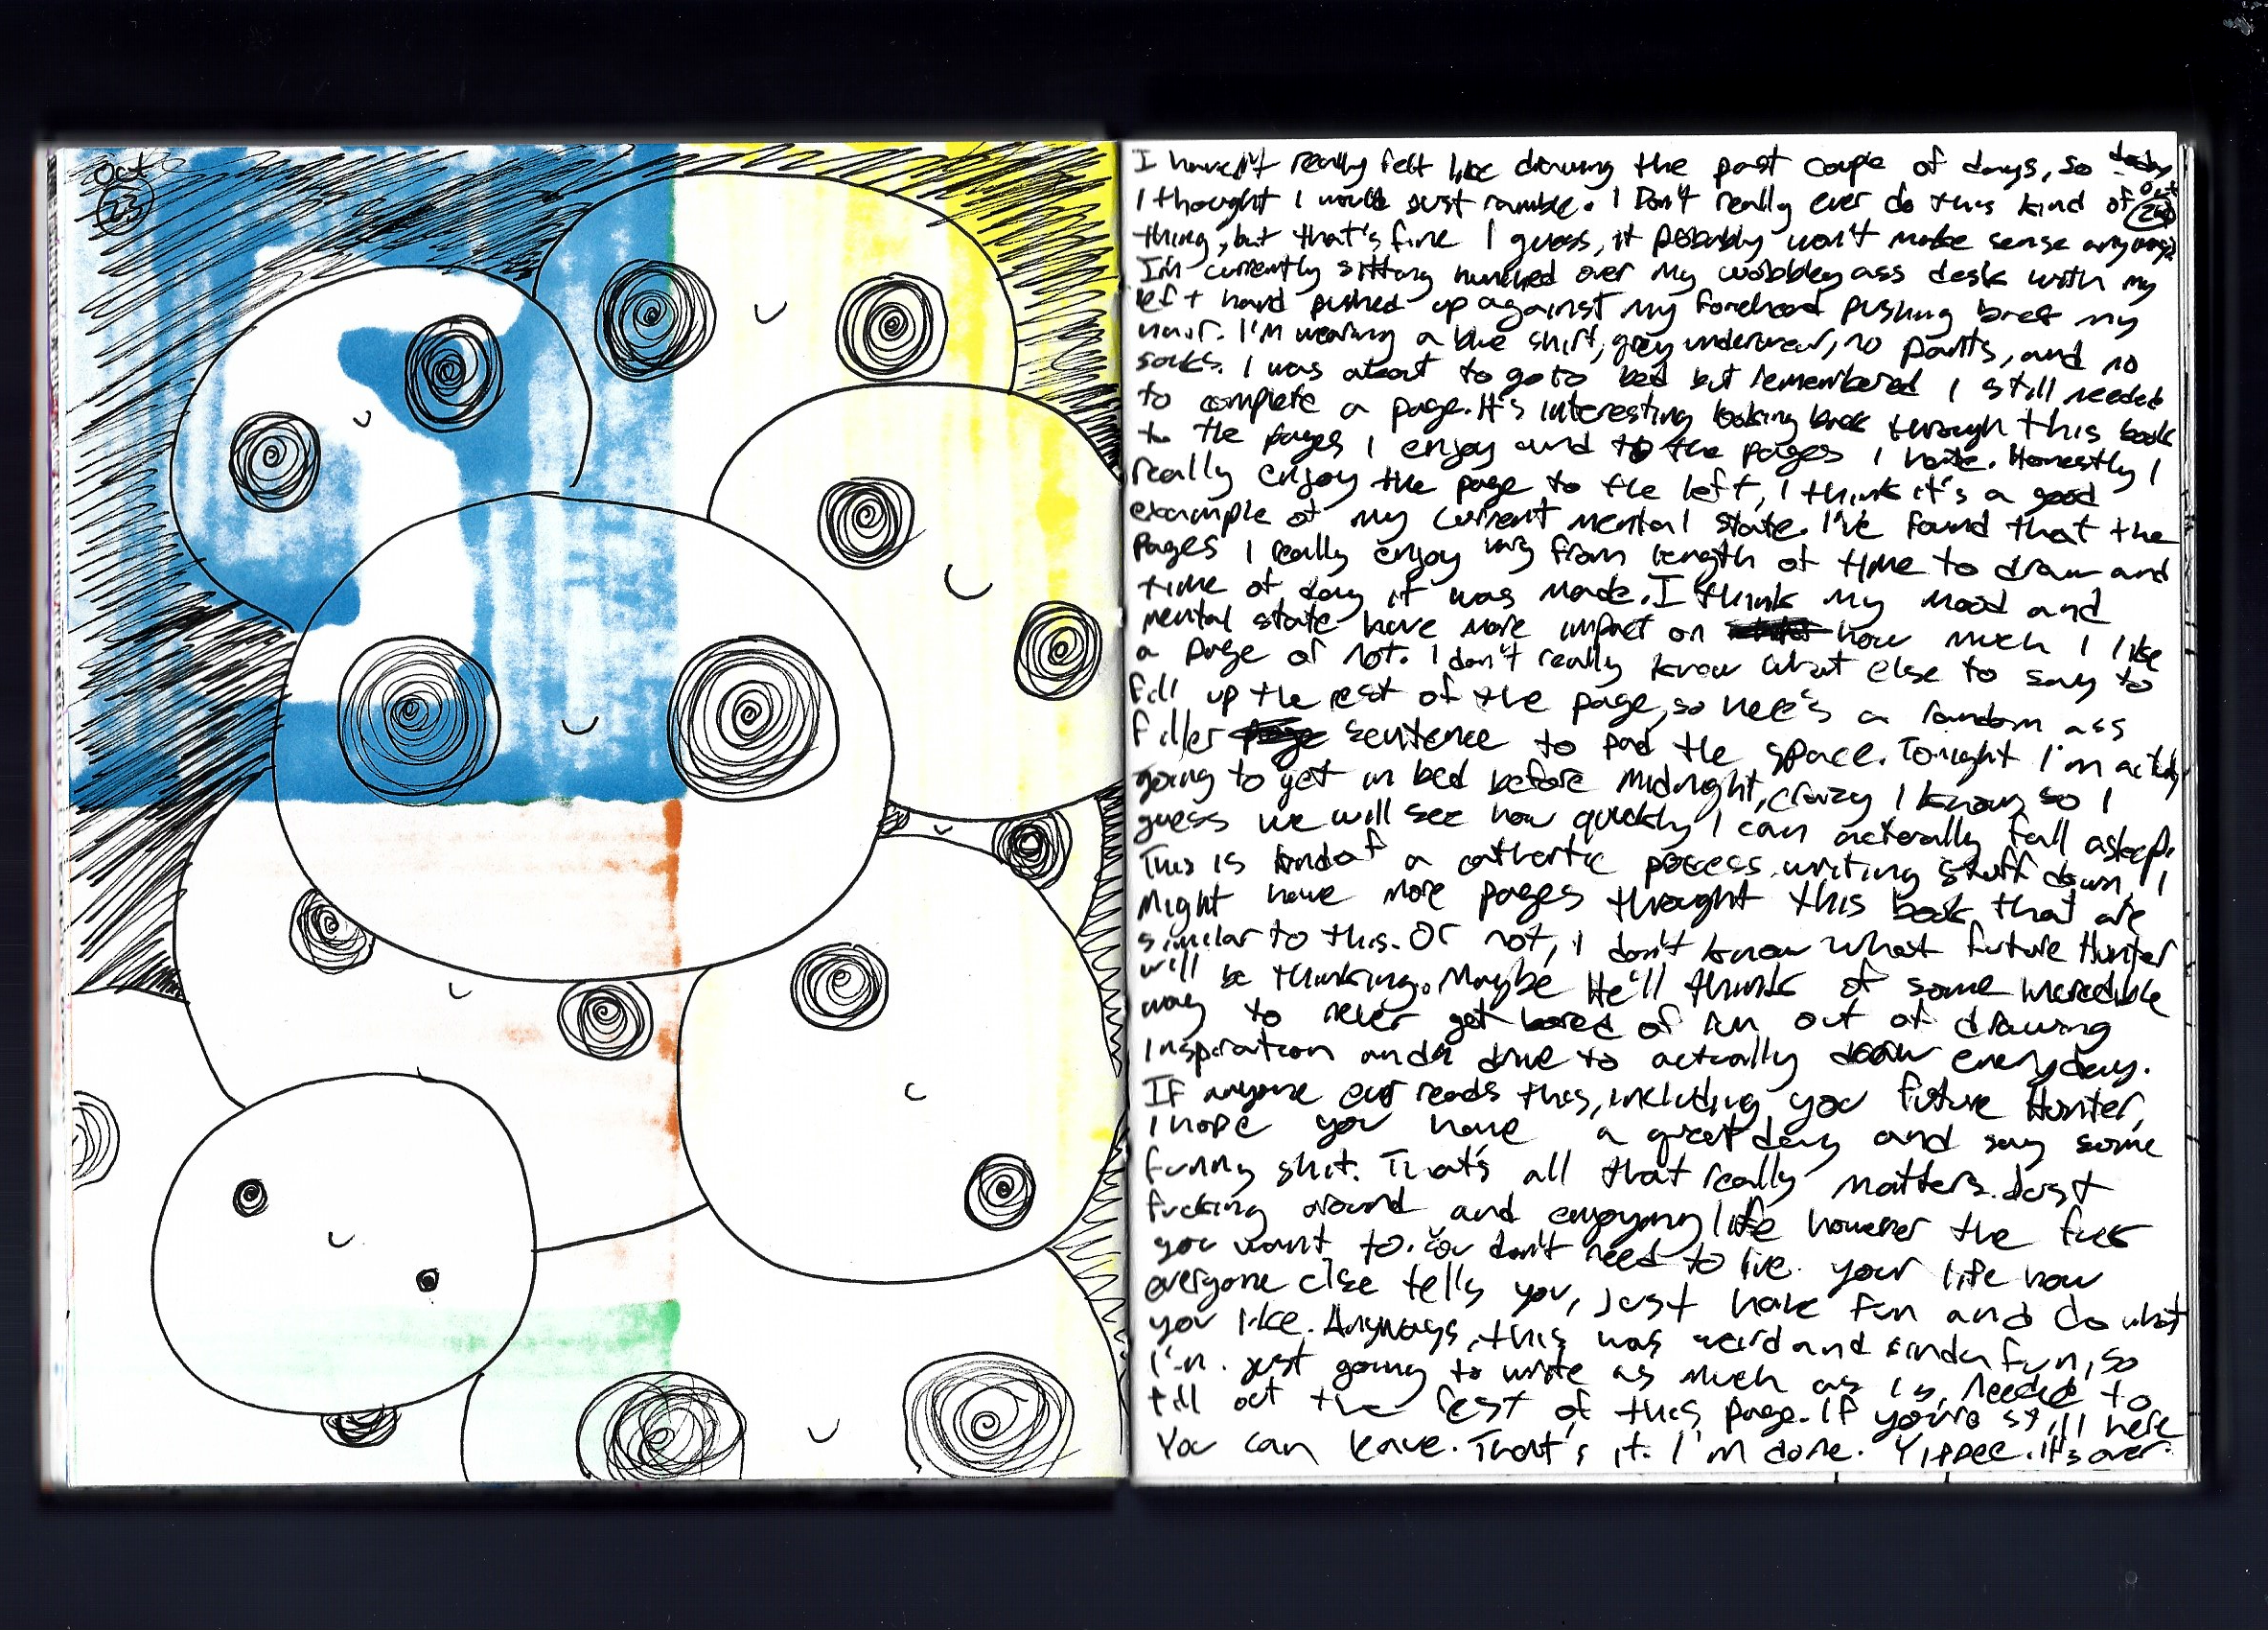 Oct
23
I haven't really felt like drawing the past couple of days, so today
Oct
I thought I would just ramble. I Don't really ever do this kind of
24
thing, but that's fine I guess, it probably won't make sense anyways.
I'm currently sitting hunched over my wobbley ass desk with my
left hand pushed up against my forehead pushing back my
hair. I'm wearing a blue shirt, grey underwear, no pants, and no
socks. I was about to go to bed but remembered I still needed
to complete a page. It's interesting looking back through this book
to the pages I enjoy and to the pages I hate. Honestly I
really enjoy the page to the left, I think it's a good
example of my current mental state. I've found that the
pages I really enjoy vary from length of time to draw and
time of day it was made. I think my mood and
mental state have more impact on how much I like
a page or not. I don't really know what else to say to
fill up the rest of the page, so here's a random ass
filler sentence to pad the space. Tonight I'm actually
going to get in bed before midnight, crazy I know, so I
guess we will see how quickly I can acterally fall asleep.
This is kindof a cathertic process writing stuff down, I
might have more pages throught this book that are
similar to this. Or not, I don't know what future Hunter
will be thinking. Maybe He'll think of some incredible
way to never get bored of run out of drawing
inspiration and drive to actually draw everyday.
If anyone ever reads this, including you future Hunter,
I hope you have a great day and say some
funny shit. That's all that really matters. Just
fucking around and enjoying life however the fuck
you want to. You don't need to live your life how
everyone else tells you, just have fun and do what
you like. Anyways, this was weird and kinda fun, so
I'm just going to write as much as is needed to
fill out the rest of this page. If you're still here
You can leave. That's it. I'm done. Yippee. It's over.